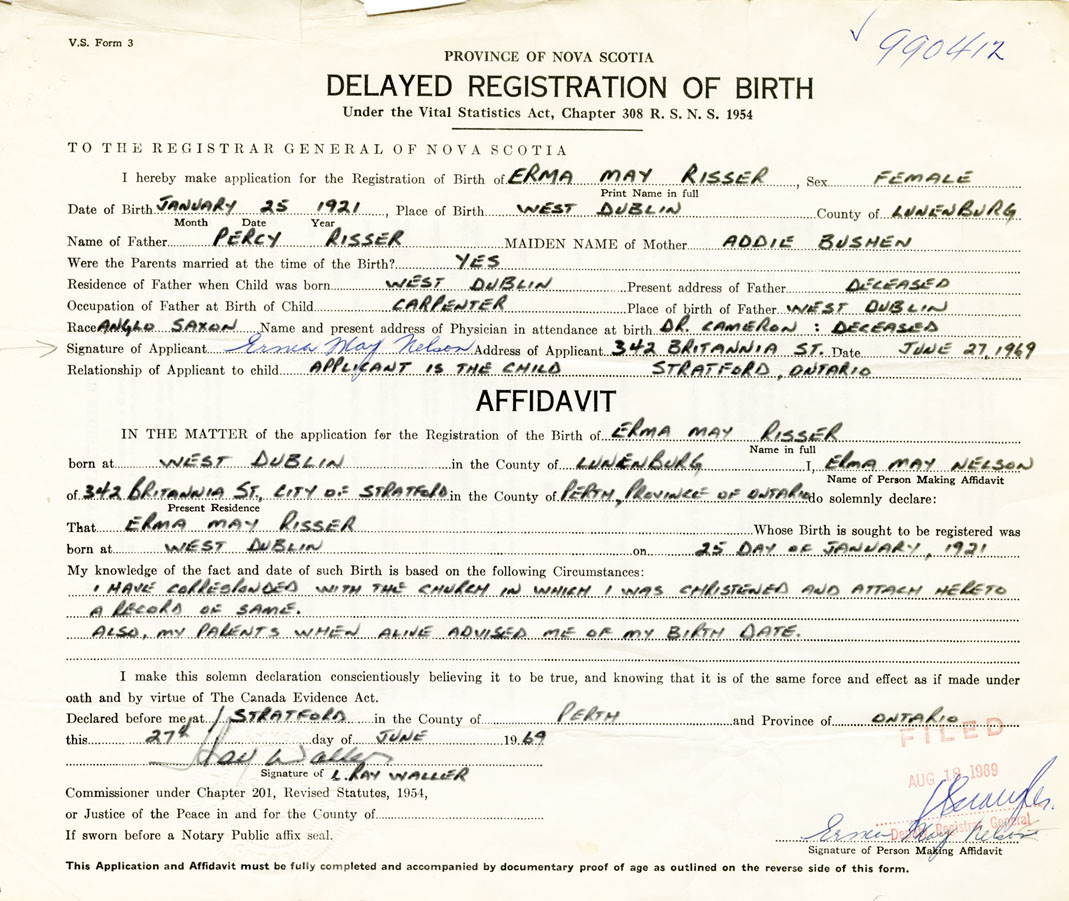 V.S. Form 3
990412
PROVINCE OF NOVA SCOTIA
DELAYED REGISTRATION OF BIRTH
Under the Vital Statistics Act, Chapter 308 R. S. N. S. 1954
TO THE REGISTRAR GENERAL OF NOVA SCOTIA
I hereby make application for the Registration of Birth of ERMA MAY RISSER, Sex FEMALE
Print Name in full
Date of Birth JANUARY 25 1921, Place of Birth WEST DUBLIN County of LUNENBURG
Month Date Year
Name of Father PERCY RISSER MAIDEN NAME of Mother ADDIE BUSHEN
Were the Parents married at the time of the Birth? YES
Residence of Father when Child was born WEST DUBLIN Present address of Father DECEASED
Occupation of Father at Birth of Child CARPENTER Place of birth of Father WEST DUBLIN
Race ANGLO SAXON Name and present address of Physician in attendance at birth DR. CAMERON : DECEASED
Signature of Applicant Erma May Nelson Address of Applicant 342 BRITANNIA ST. Date JUNE 27, 1969
Relationship of Applicant to child APPLICANT IS THE CHILD STRATFORD, ONTARIO
AFFIDAVIT
IN THE MATTER of the application for the Registration of the Birth of ERMA MAY RISSER
Name in full
born at WEST DUBLIN in the County of LUNENBURG I, ERMA MAY NELSON
Name of Person Making Affidavit
of 342 BRITANNIA ST., CITY OF STRATFORD in the County of PERTH, PROVINCE OF ONTARIO do solemnly declare:
Present Residence
That ERMA MAY RISSER Whose Birth is sought to be registered was
born at WEST DUBLIN on 25 DAY OF JANUARY, 1921
My knowledge of the fact and date of such Birth is based on the following Circumstances:
I HAVE CORRESPONDED WITH THE CHURCH IN WHICH I WAS CHRISTENED AND ATTACH HERETO
A RECORD OF SAME.
ALSO, MY PARENTS WHEN ALIVE ADVISED ME OF MY BIRTH DATE.
I make this solemn declaration conscientiously believing it to be true, and knowing that it is of the same force and effect as if made under
oath and by virtue of The Canada Evidence Act.
Declared before me at STRATFORD in the County of PERTH and Province of ONTARIO
this 27th day of JUNE 1969
FILED
Ray Waller
Signature of L. RAY WALLER
AUG 18 1969
Commissioner under Chapter 201, Revised Statutes, 1954,
or Justice of the Peace in and for the County of
Deputy Registrar General
If sworn before a Notary Public affix seal.
Erma May Nelson
Signature of Person Making Affidavit
This Application and Affidavit must be fully completed and accompanied by documentary proof of age as outlined on the reverse side of this form.